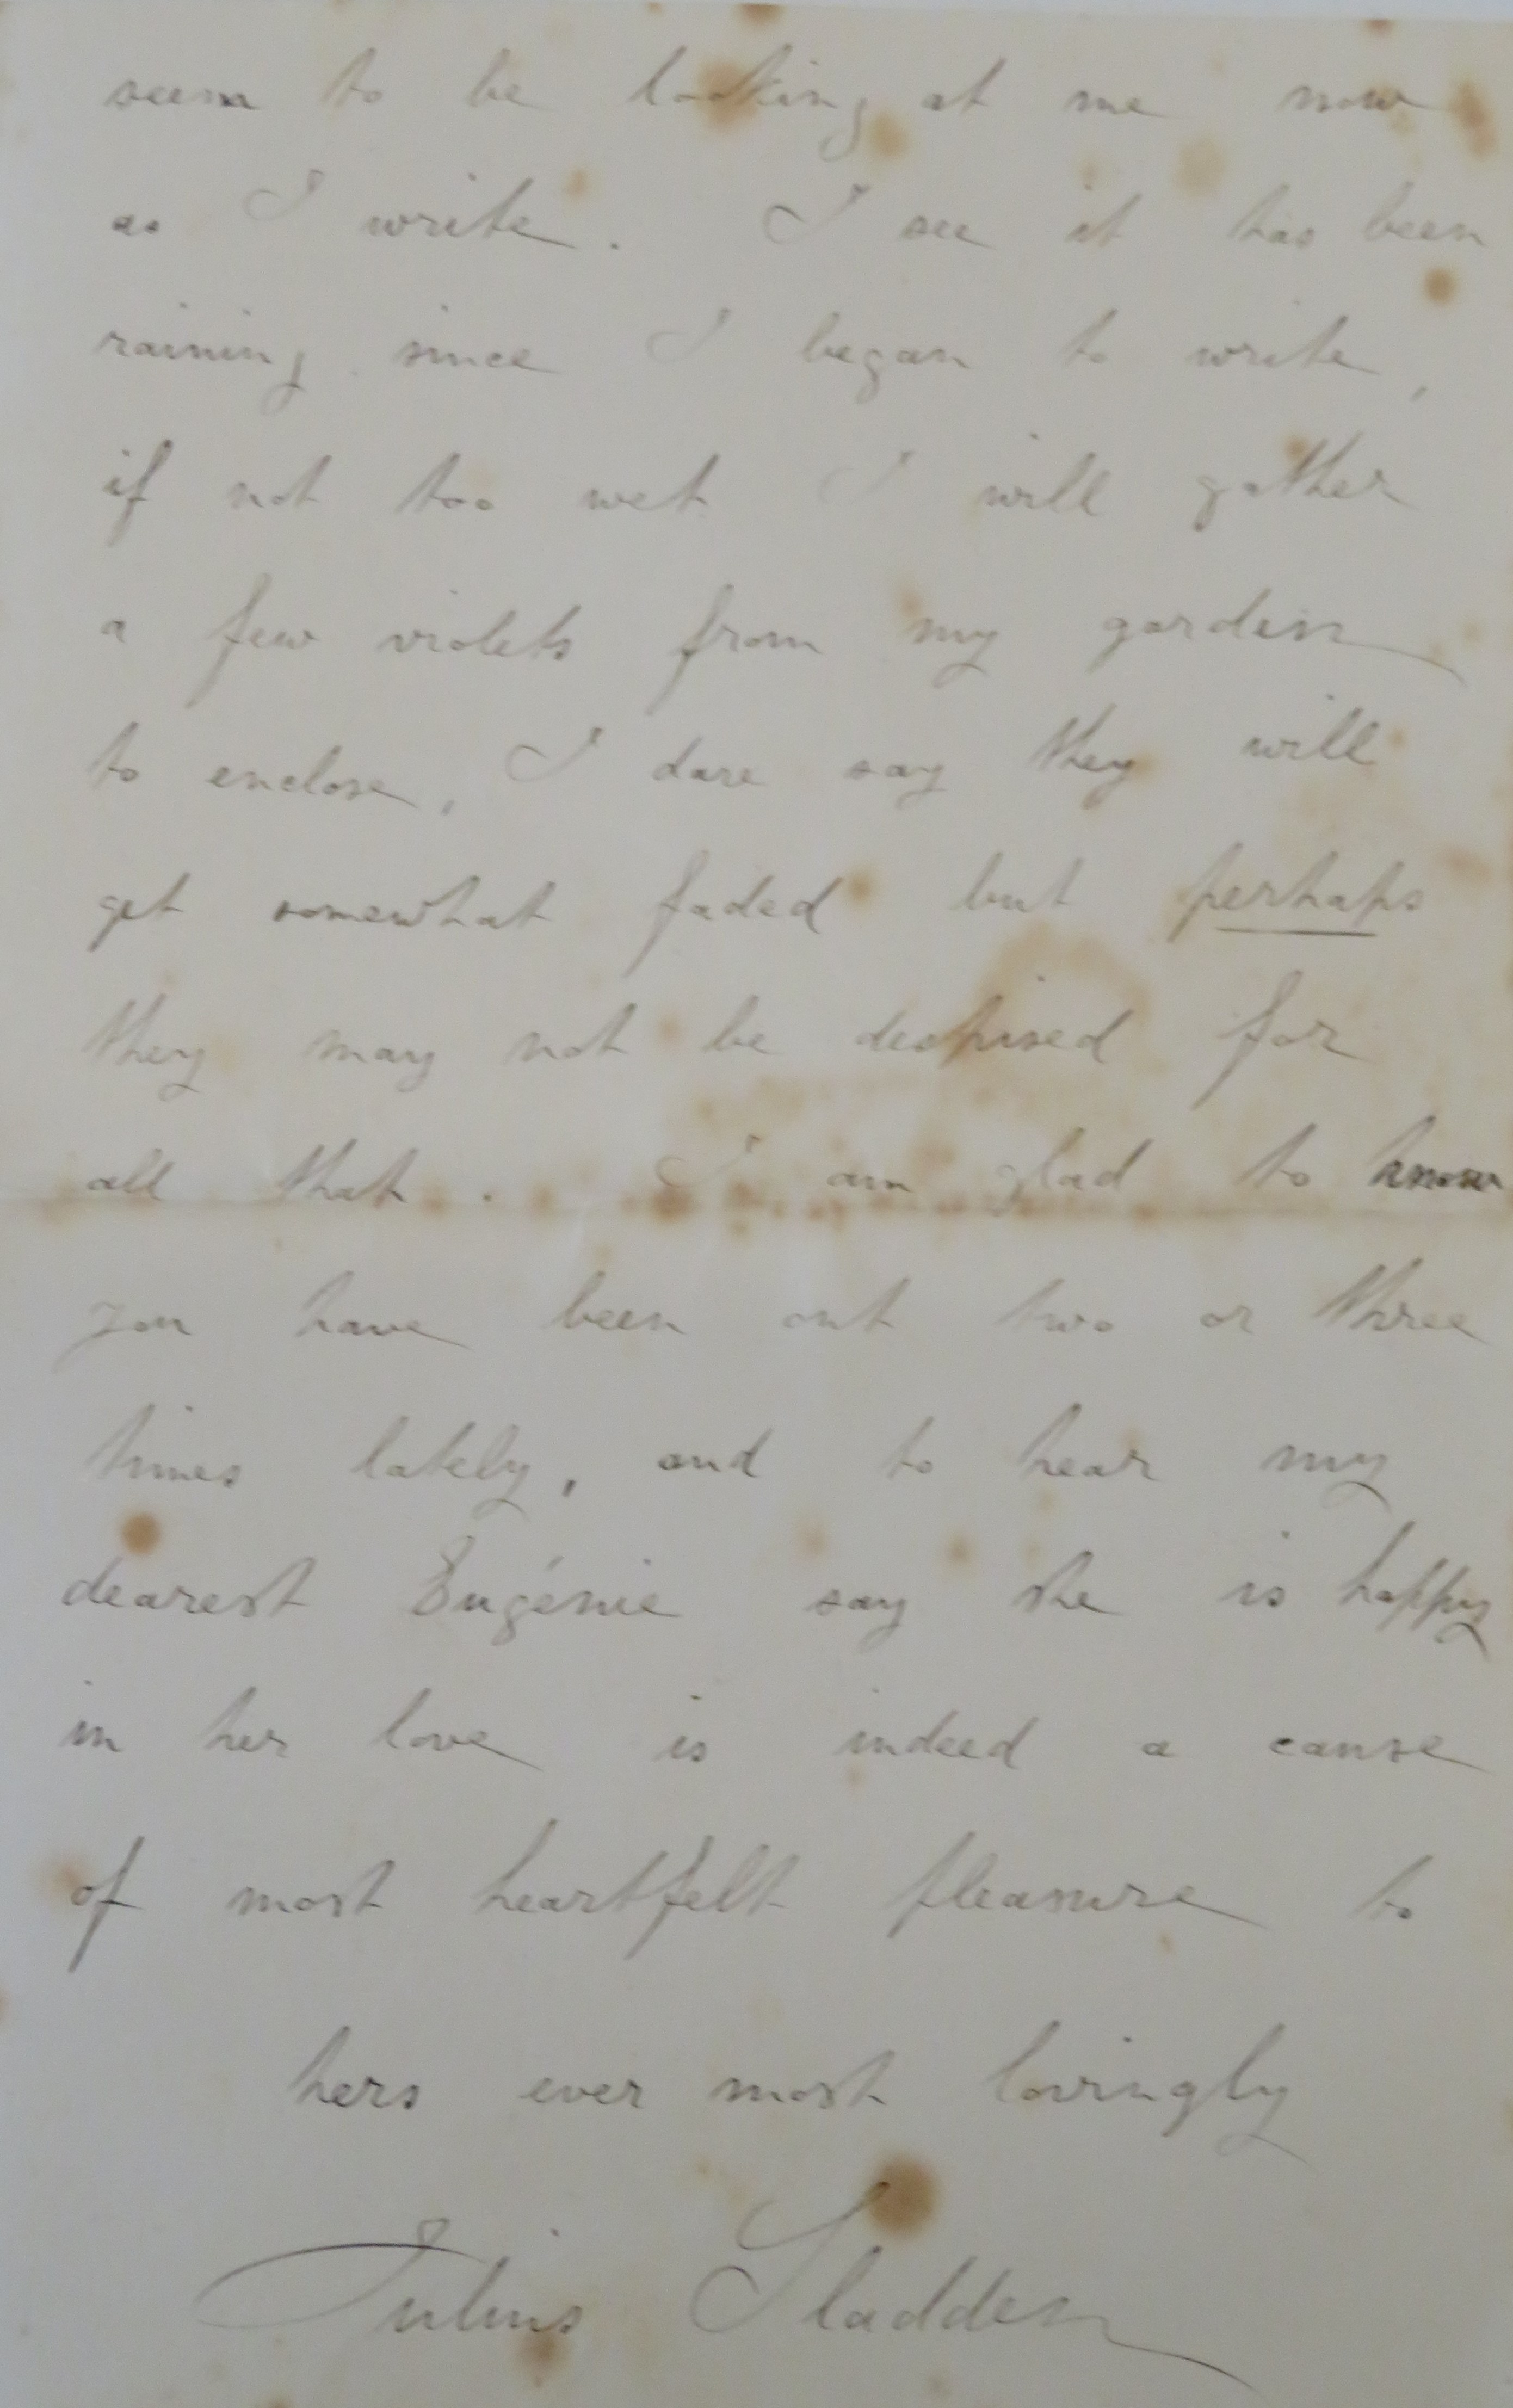 seem to be looking at me now
as I write. I see it has been
raining since I began to write,
if not too wet I will gather
a few violets from my garden
to enclose, I dare say they will
get somewhat faded but perhaps
they may not be despised for
all that. I am glad to know
you have been out two or three
times lately, and to hear my
dearest Eugénie say she is happy
in her love is indeed a cause
of most heartfelt pleasure to
hers ever most lovingly
Julius Sladden